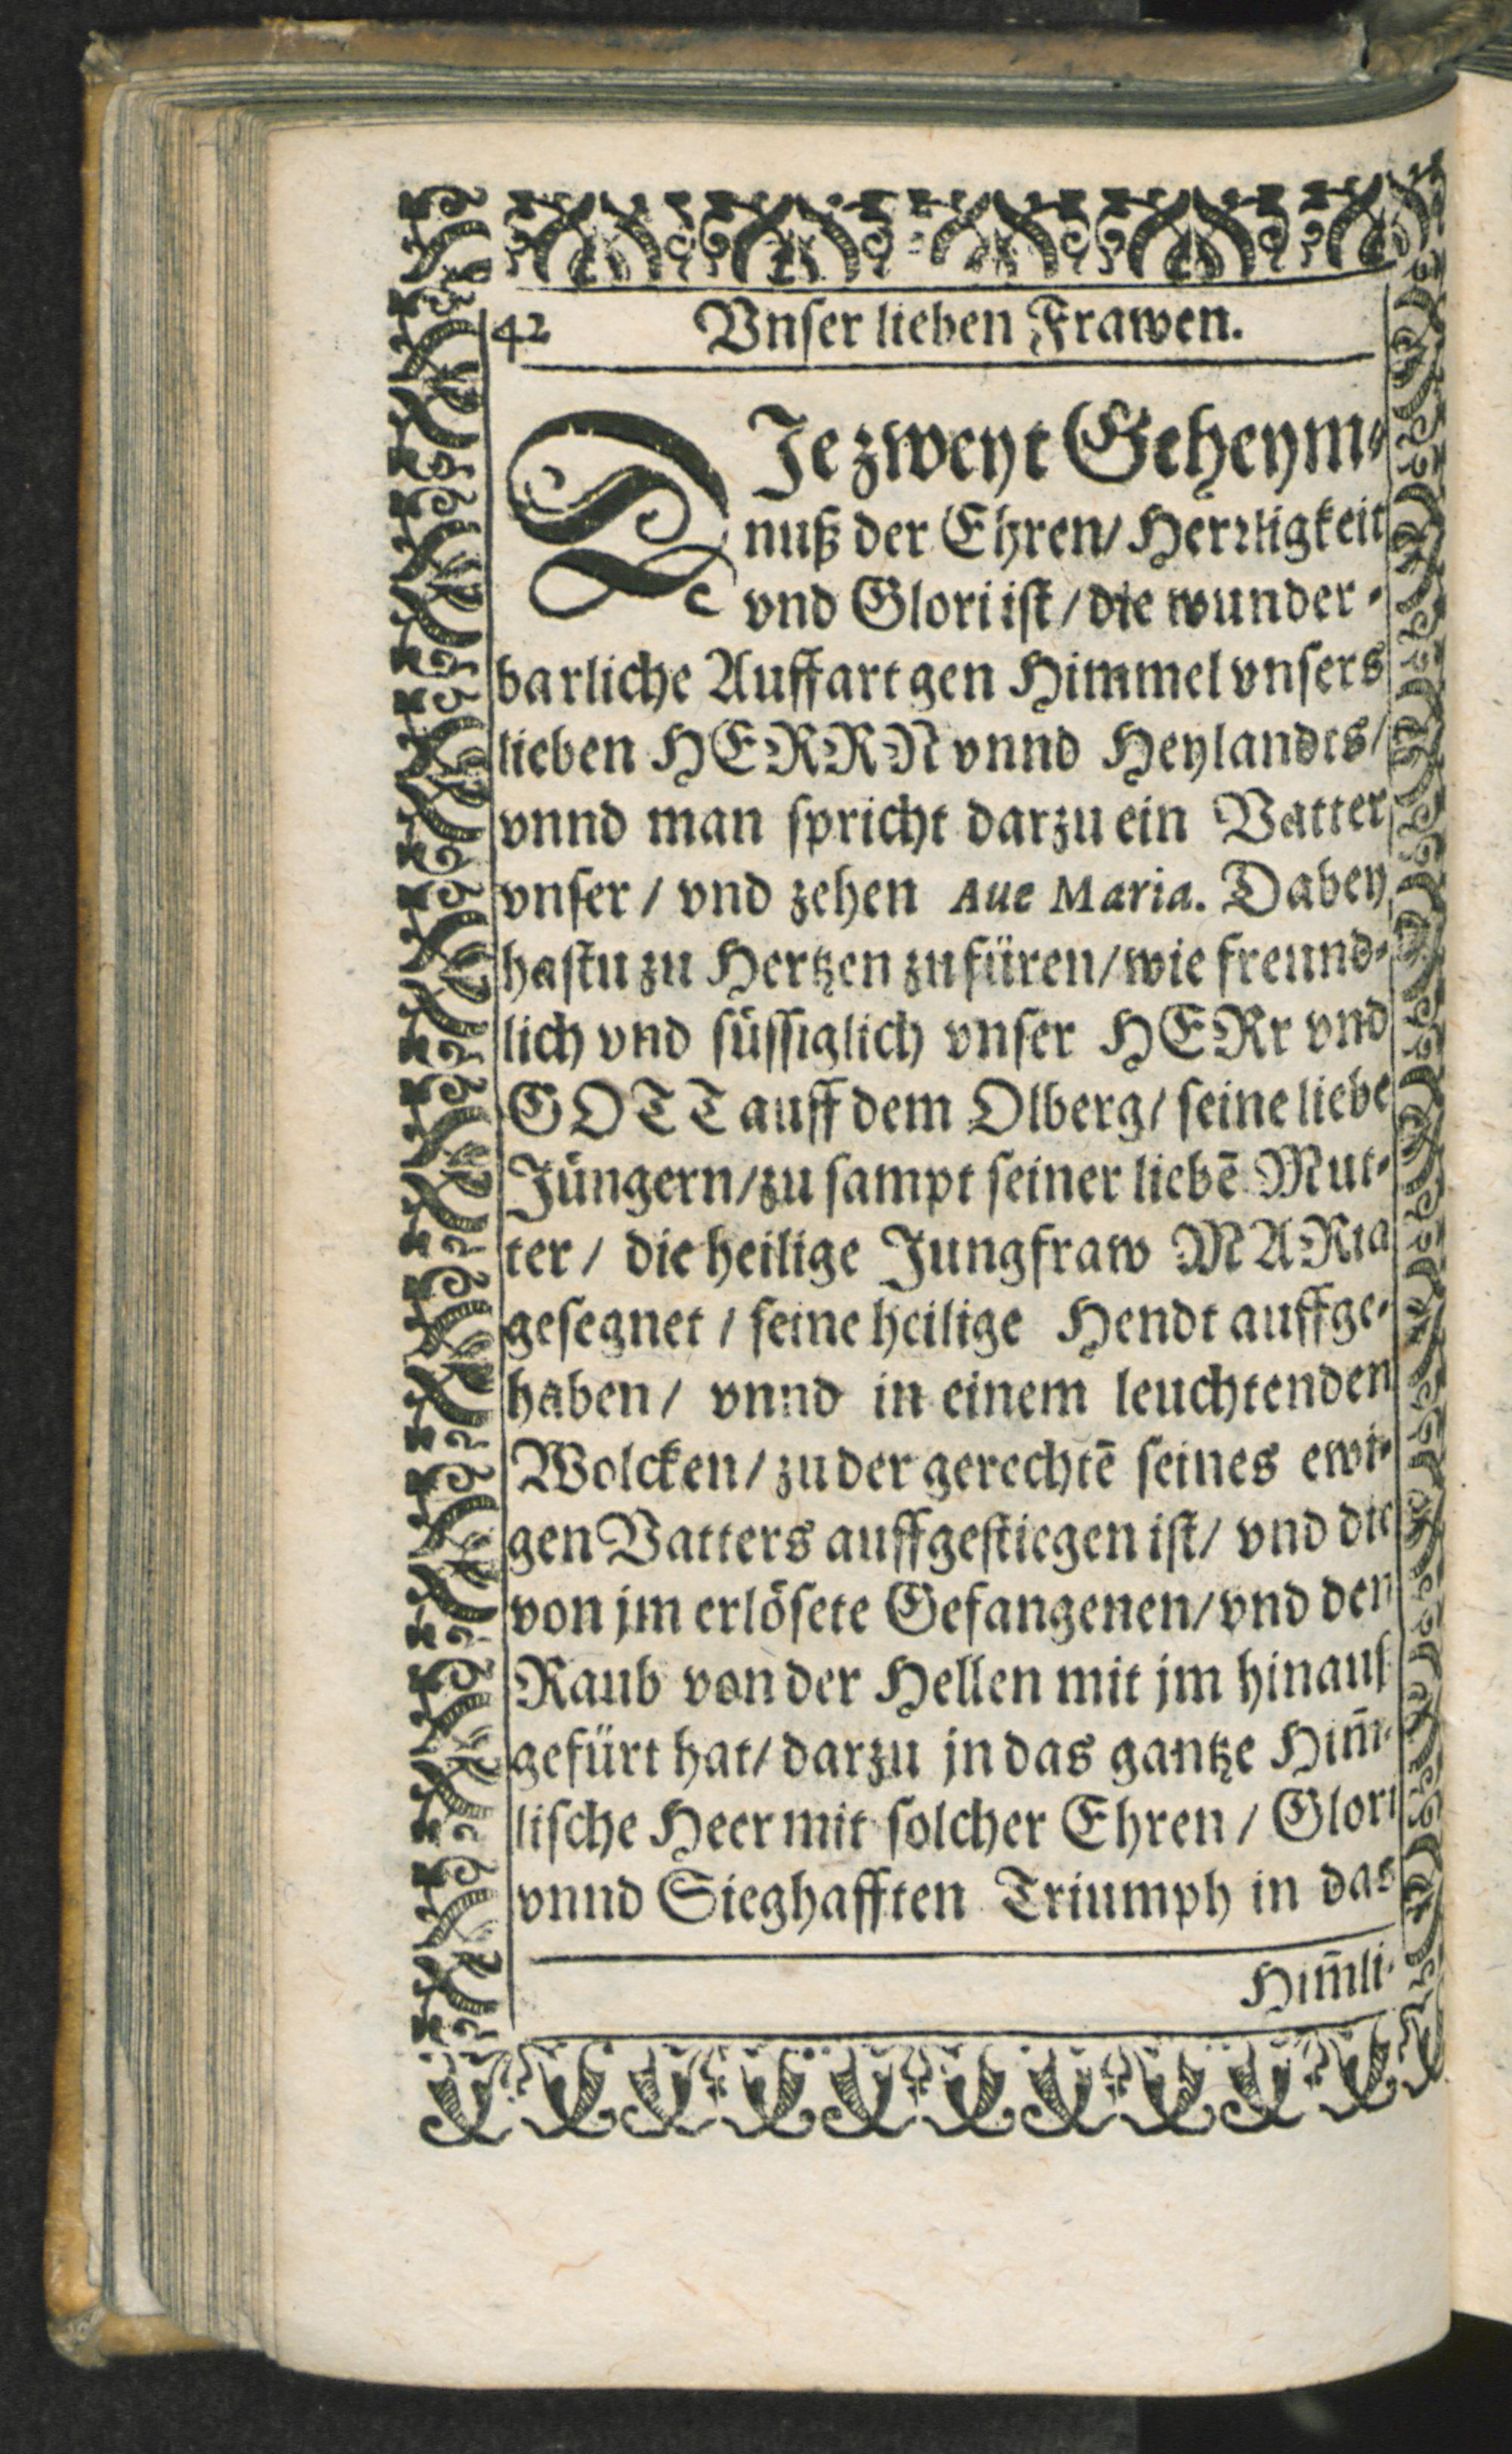 42 Vnser lieben Frawen.
DJe zweyt Geheym-
nuß der Ehren/ Herrligkeit
vnd Glori ist/ die wunder-
barliche Auffart gen Himmel vnsers
lieben HERRN vnnd Heylandes/
vnnd man spricht darzu ein Vatter
vnser/ vnd zehen Aue Maria. Dabey
hastu zu Hertzen zufüren/ wie freund-
lich vnd süssiglich vnser HERr vnd
GOTT auff dem Olberg/ seine liebe
Jüngern/ zu sampt seiner liebē Mut-
ter/ die heilige Jungfraw MARia
gesegnet/ seine heilige Hendt auffge-
haben/ vnnd in einem leuchtenden
Wolcken/ zu der gerechtē seines ewi-
gen Vatters auffgestiegen ist/ vnd die
von jm erlösete Gefangenen/ vnd den
Raub von der Hellen mit jm hinauf
gefürt hat/ darzu jn das gantze Him̃-
lische Heer mit solcher Ehren/ Glori
vnnd Sieghafften Triumph in das
Him̃li-